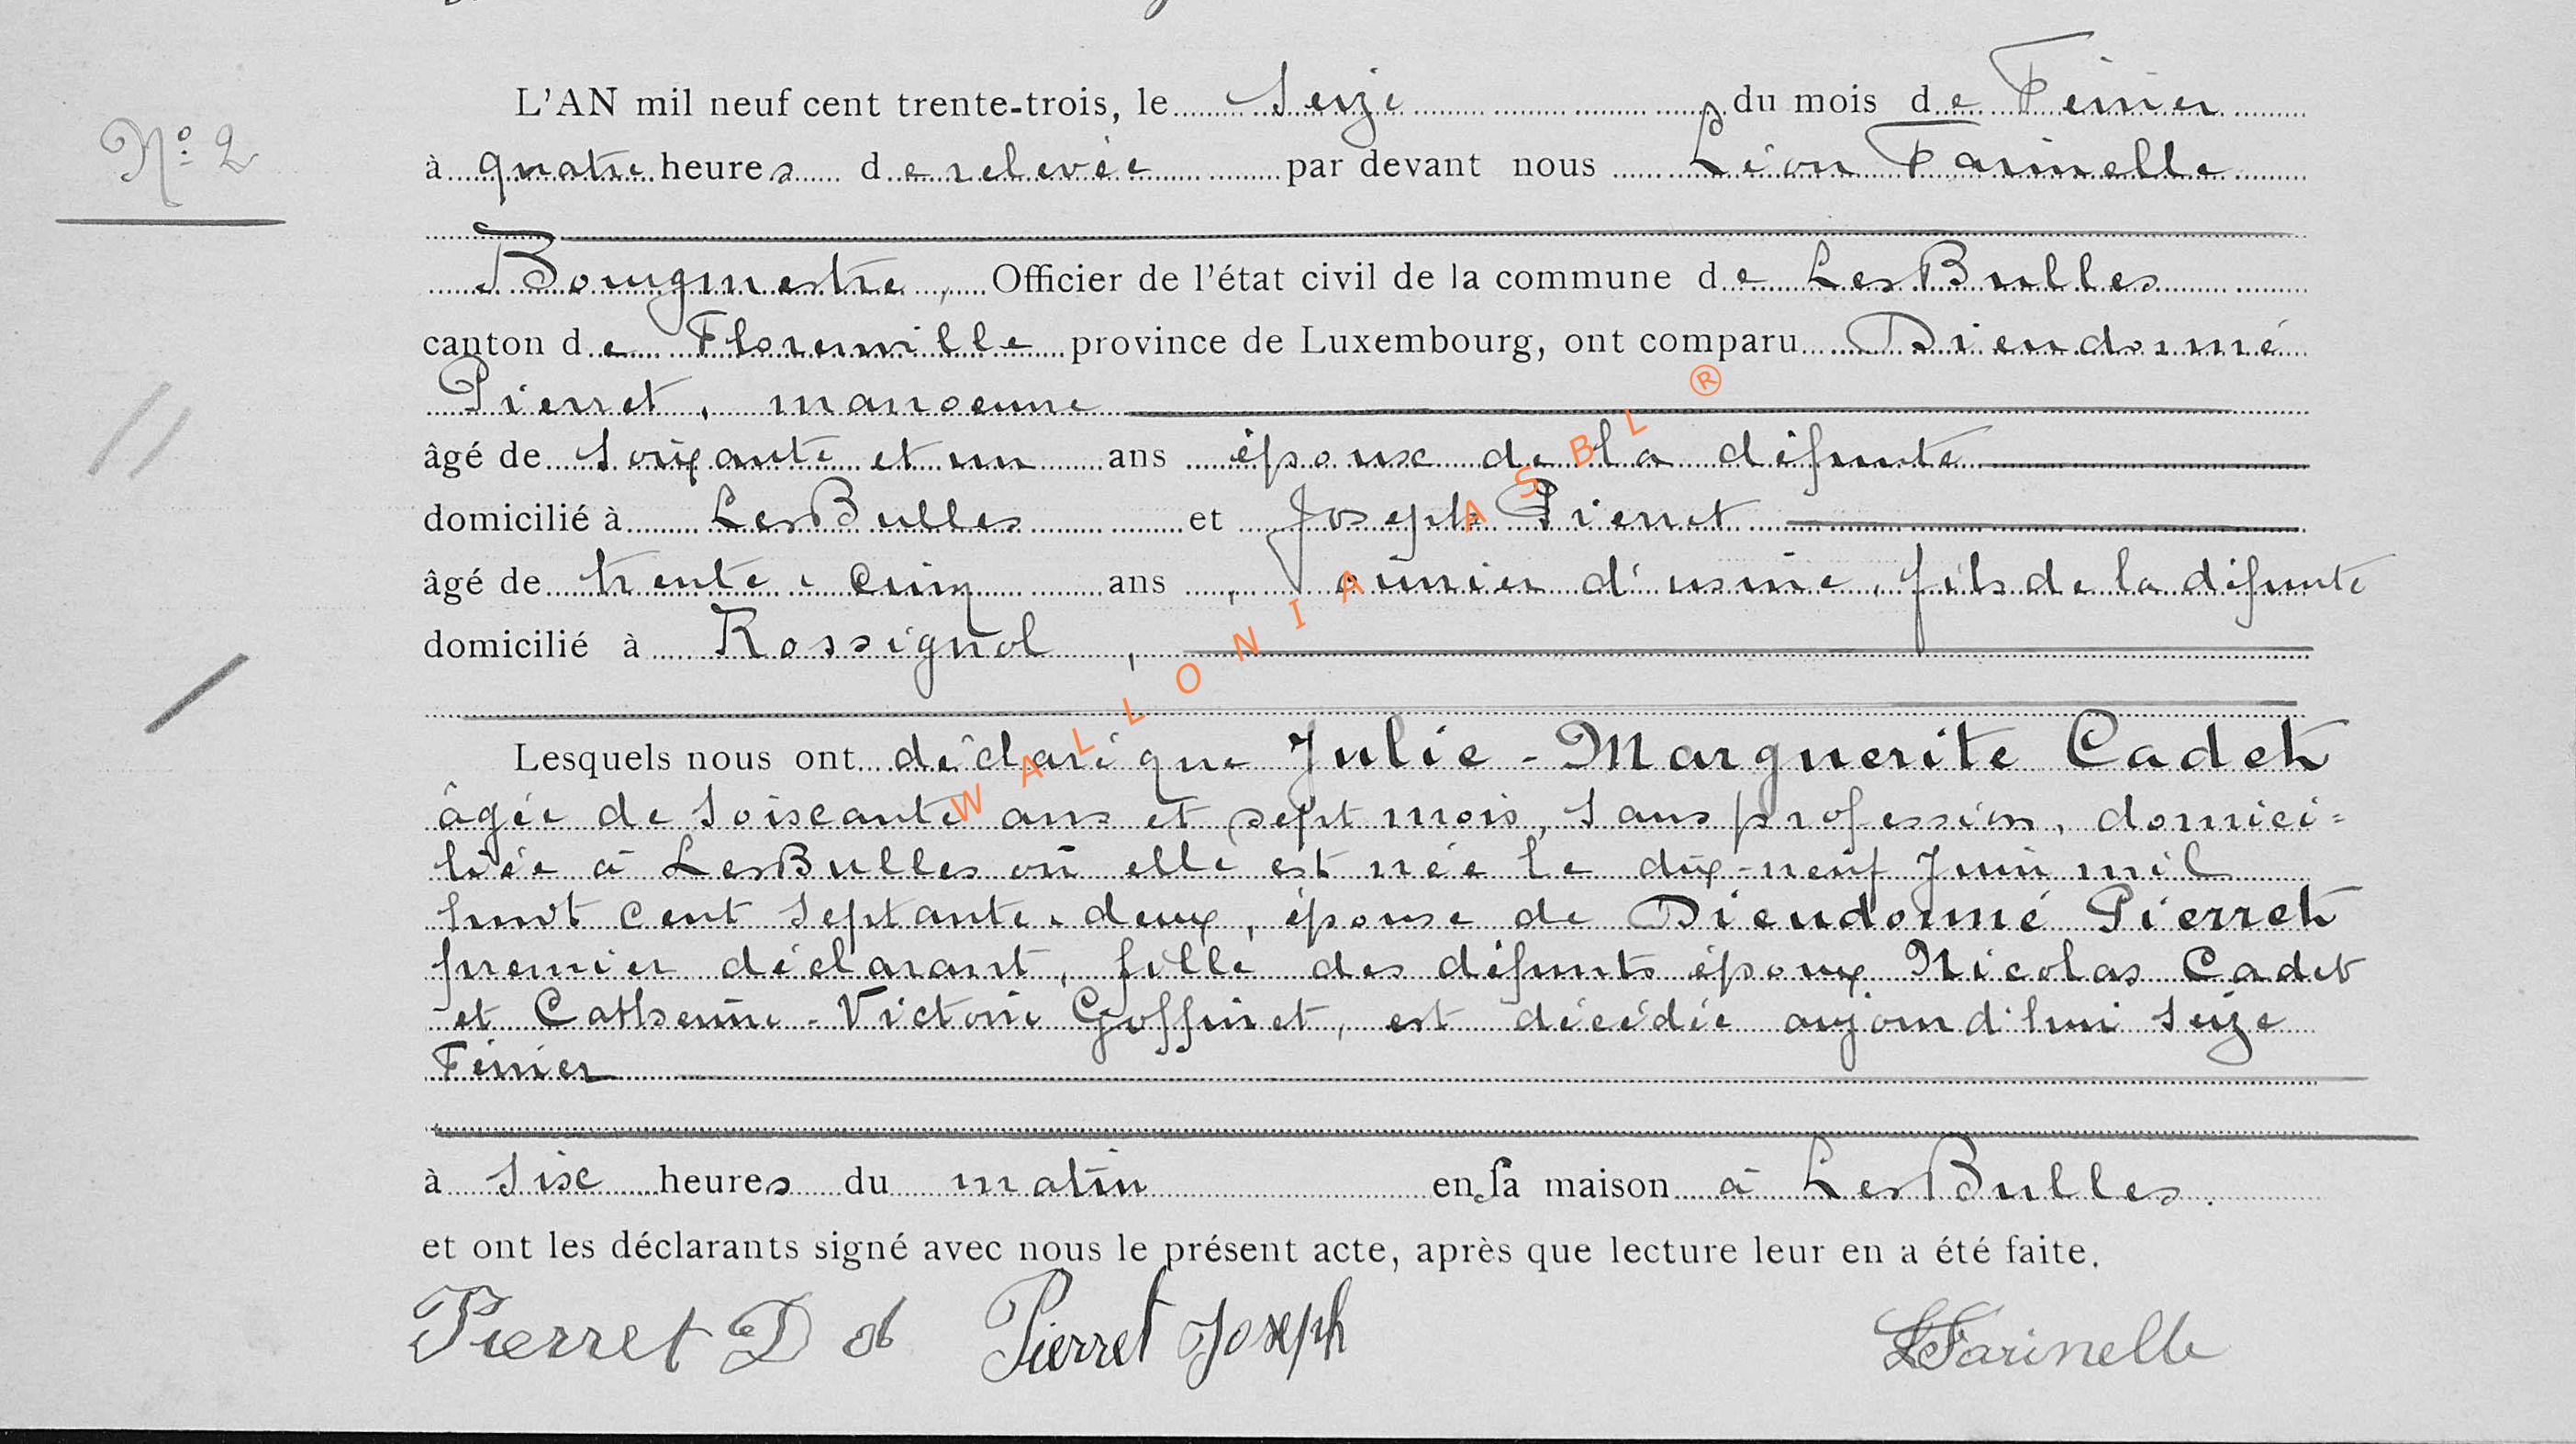 L'AN mil neuf cent trente-trois, le Seize du mois de Février
N° 2
à quatre heures de relevée par devant nous Léon Farinelle
Bourgmestre, Officier de l'état civil de la commune de Les Bulles
canton de Florenville province de Luxembourg, ont comparu Dieudonné
Pierret, manoeuvre
âgé de Soixante et un ans époux de la défunte
domicilié à Les Bulles et Joseph Pierret
âgé de trente-cinq ans, ouvrier d'usine, fils de la défunte
domicilié à Rossignol,
Lesquels nous ont déclaré que Julie-Marguerite Cadet
âgée de Soixante ans et sept mois, Sans profession, domici=
liée à Les Bulles où elle est née le dix-neuf Juin mil
huit cent Septante-deux, épouse de Dieudonné Pierret
premier déclarant, fille des défunts époux Nicolas Cadet
et Catherine-Victorie Goffinet, est décédée aujourd'hui Seize
Février
à Six heures du matin en Sa maison à Les Bulles.
et ont les déclarants signé avec nous le présent acte, après que lecture leur en a été faite.
Pierret D Pierret Joseph LFarinelle
WALLONIA ASBL ®